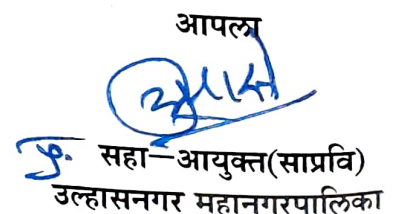 आपला
प्र. सहा—आयुक्त(साप्रवि)
उल्हासनगर महानगरपालिका